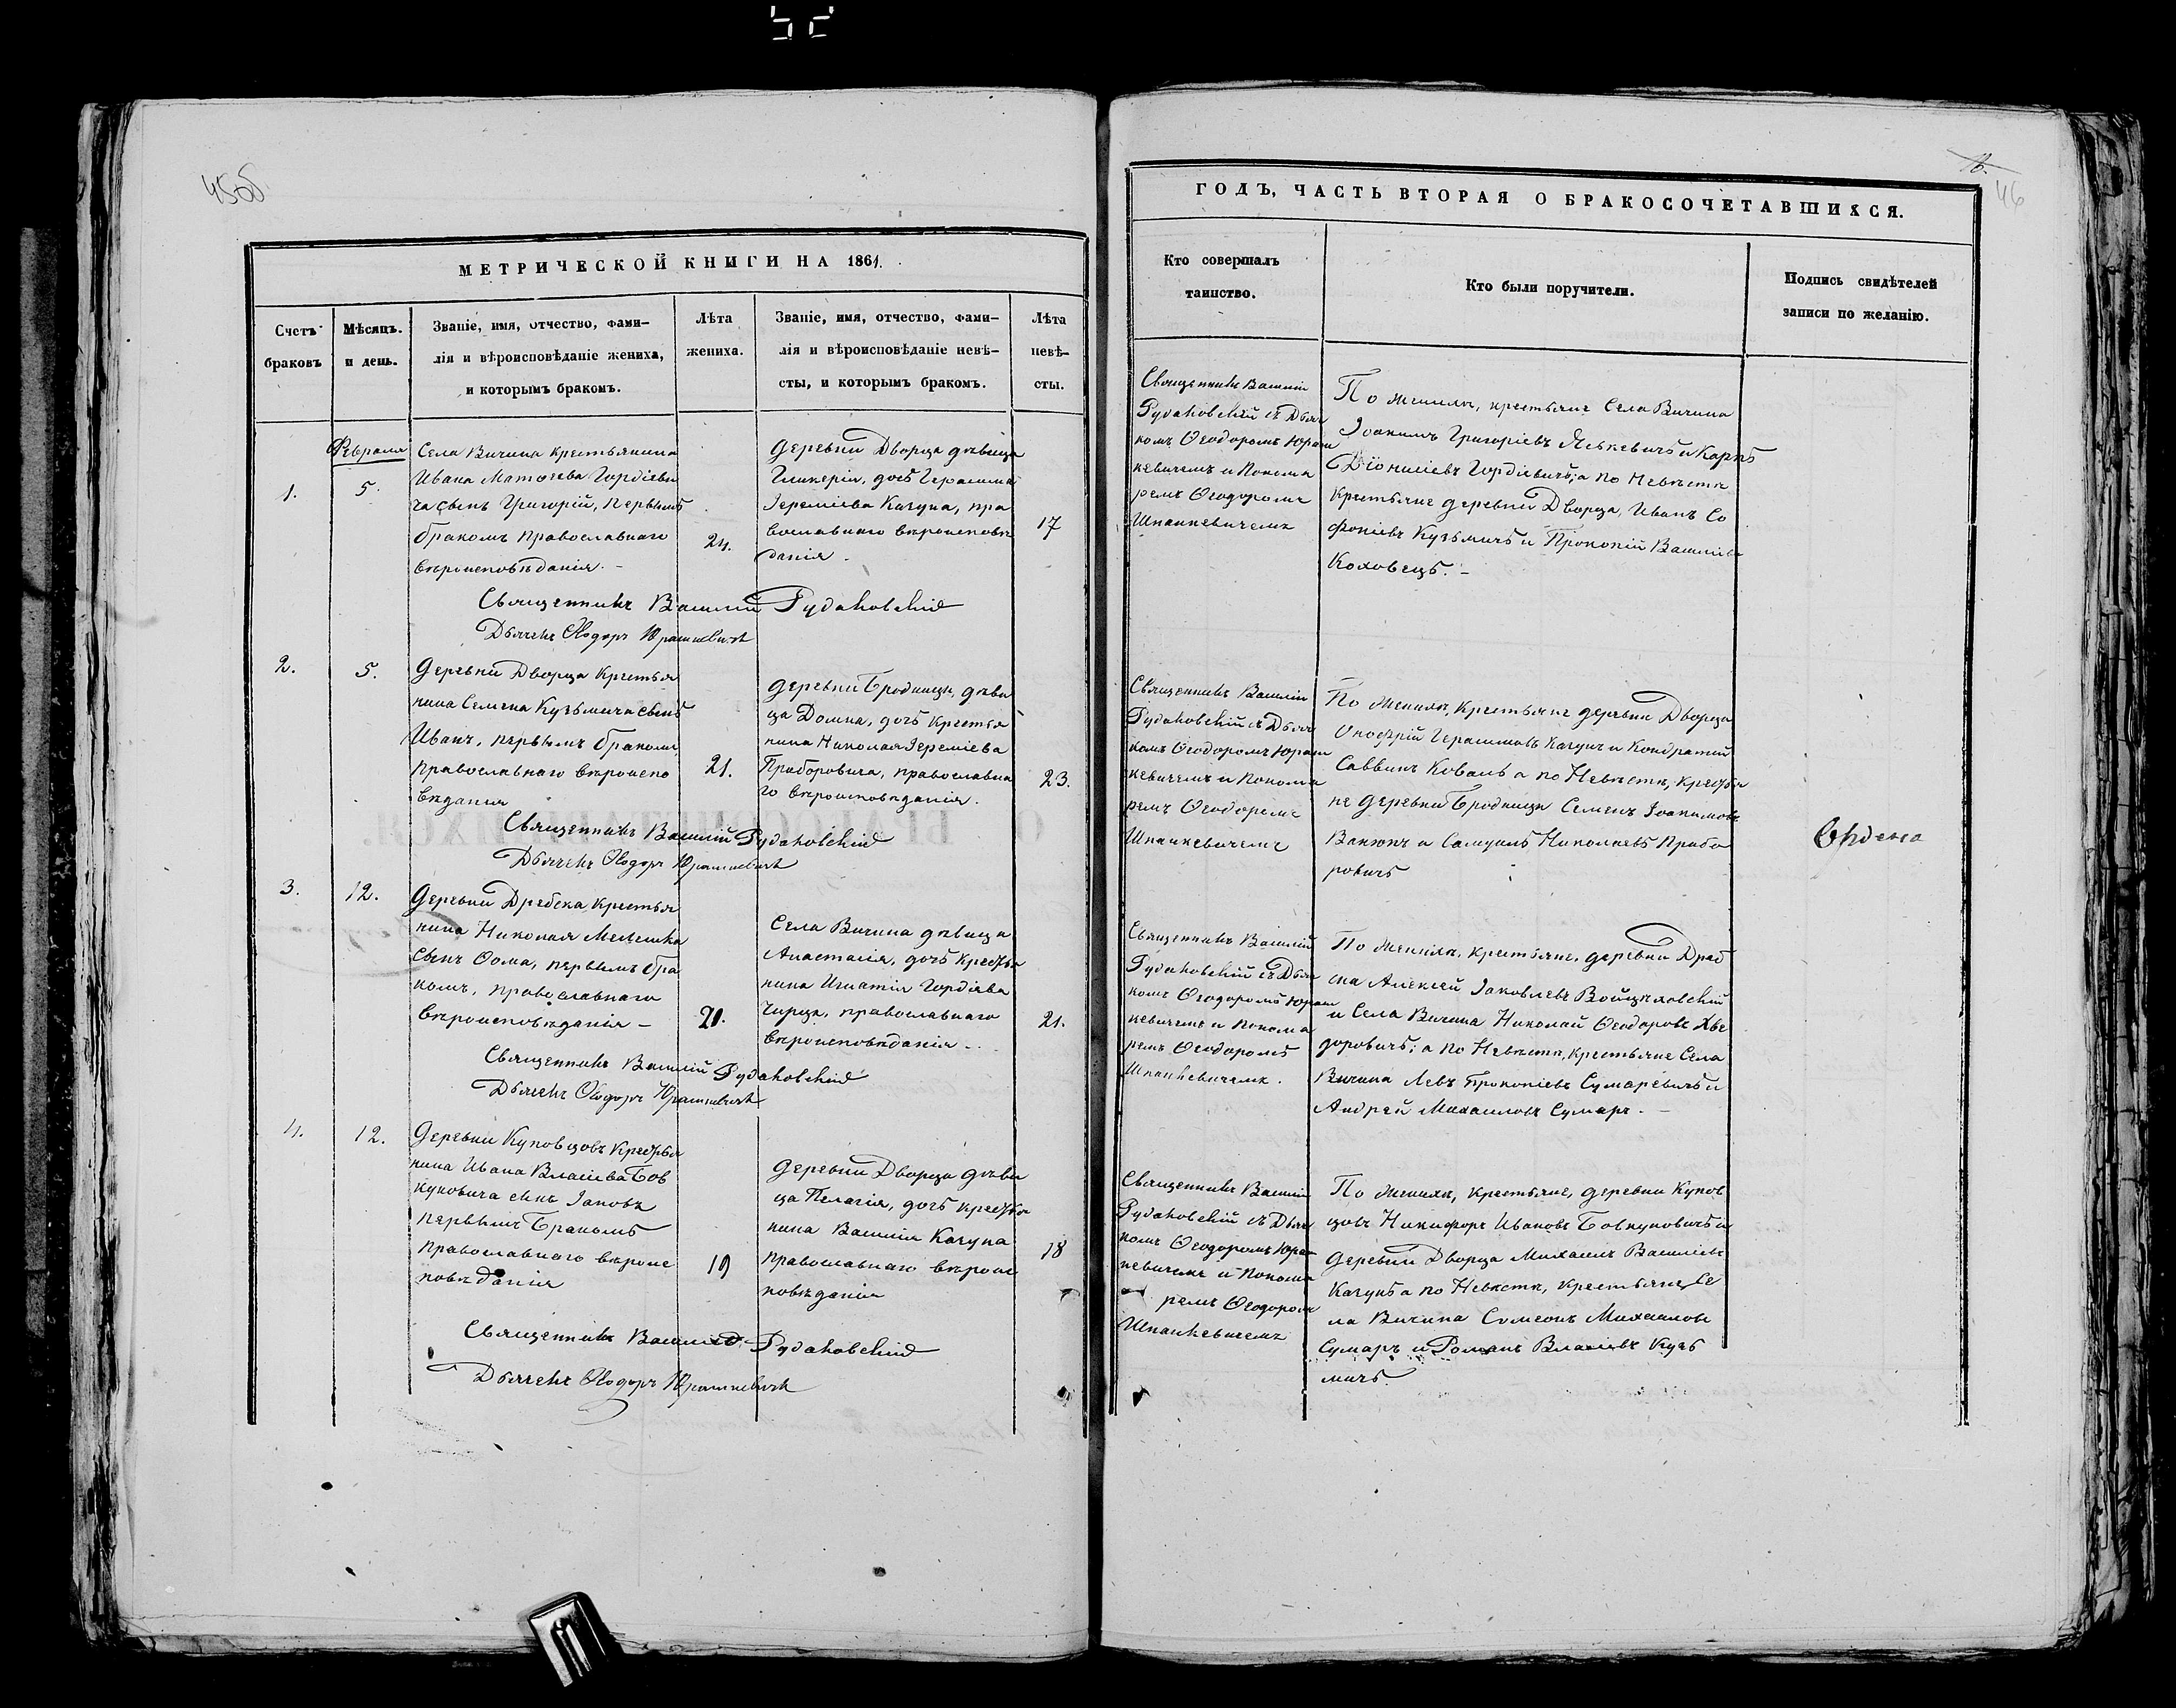 45об
МЕТРИЧЕСКОЙ КНИГИ НА 1861.
Счетъ браковъ
Мѣсяцъ. и день.
Званіе, имя, отчество, фами-
лія и вѣроисповѣданіе жениха,
и которымъ бракомъ.
Лѣта жениха.
Званіе, имя, отчество, фами-
лія и вѣроисповѣданіе невѣ-
сты, и которымъ бракомъ.
Лѣта невѣ-
сты.
Февраля
1.
5.
Села Вичина крестьянина
Ивана Матѳеева Гордіеви
ча сынъ Григорій, первымъ
бракомъ православнаго
вѣроисповѣданія. -
24.
Деревни Дворца дѣвица
Гликерія, дочь Герасима
Іереміева Качуна, пра
вославнаго вѣроисповѣ
данія.
17
Священникъ Василій Рудаковскій
Дьячекъ Ѳеодоръ Юрашкевичъ
2.
5.
Деревни Дворца Крестья
нина Семена Кузьмича сынъ
Иванъ, первымъ бракомъ,
православнаго вѣроиспо
вѣданія
21.
Деревни Бродницы, дѣви
ца Домна, дочь крестья
нина Николая Іереміева
Приборовича, православна
го вѣроисповѣданія.
23.
Священникъ Василій Рудаковскій
Дьячекъ Ѳеодоръ Юрашкевичъ
3.
12.
Деревни Дребска, крестья
нина Николая Мелешка
сынъ Ѳома, первымъ бра
комъ, православнаго
вѣроисповѣданія -
21.
Села Вичина дѣвица
Анастасія, дочь крестья
нина Игнатія Гордіева
Чирца, православнаго
вѣроисповѣданія -
21.
Священникъ Василій Рудаковскій
Дьячекъ Ѳеодоръ Юрашкевичъ
4.
12.
Деревни Куповцовъ крестья
нина Ивана Власіева Бов
куновича сынъ Іаковъ
первымъ бракомъ
православнаго вѣроис
повѣданія
19
Деревни Дворца дѣви
ца Пелагія, дочь крестья
нина Василія Качуна
православнаго вѣроис
повѣданія
18
Священникъ Василій Рудаковскій
Дьячекъ Ѳеодоръ Юрашкевичъ
46
ГОДЪ, ЧАСТЬ ВТОРАЯ О БРАКОСОЧЕТАВШИХСЯ.
Кто совершалъ
таинство.
Кто были поручители.
Подпись свидѣтелей
записи по желанію.
Священникъ Василій
Рудаковскій съ Дьяч
комъ Ѳеодоромъ Юраш
кевичемъ и Понома
ремъ Ѳеодоромъ
Шпанкевичемъ
По женихѣ, крестьяне Села Вичина
Іоакимъ Григоріевъ Яськевичъ и Карпъ
Діонисіевъ Гордіевичъ; а по Невѣстѣ
крестьяне деревни Дворца, Иванъ Со
фоніевъ Кузьмичъ и Прокопій Василіевъ
Коховецъ. -
Священникъ Василій
Рудаковскій съ Дьяч
комъ Ѳеодоромъ Юраш
кевичемъ и Понома
ремъ Ѳеодоромъ
Шпанкевичемъ
По женихѣ, крестьяне деревни Дворца
Онофрій Герасимовъ Качунъ и Кондратій
Саввинъ Коваль а по Невѣстѣ, крестья
не деревни Бродницы Семенъ Іоакимовъ
Ванюкъ и Самуилъ Николаевъ Прибо
ровичъ
Священникъ Василій
Рудаковскій съ Дьяч
комъ Ѳеодоромъ Юраш
кевичемъ и Понома
ремъ Ѳеодоромъ
Шпанкевичемъ.
По женихѣ, крестьяне, деревни Дреб
ска Алексѣй Іаковлевъ Войцѣховскій
и Села Вичина Николай Ѳеодоровъ Хве
доровичъ; а по Невѣстѣ, крестьяне Села
Вичина Левъ Прокопіевъ Сумаревичъ и
Андрей Михаиловъ Сумаръ. -
Священникъ Василій
Рудаковскій съ Дьяч
комъ Ѳеодоромъ Юраш
кевичемъ и Понома
ремъ Ѳеодоромъ
Шпанкевичемъ
По женихѣ, крестьяне, деревни Купов
цовъ Никифоръ Ивановъ Бовкуновичъ и
деревни Дворца Михаилъ Василіевъ
Качунъ а по Невѣстѣ, крестьяне Се
ла Вичина Симеонъ Михаиловъ
Сумаръ и Романъ Власіевъ Кузь
мичъ.